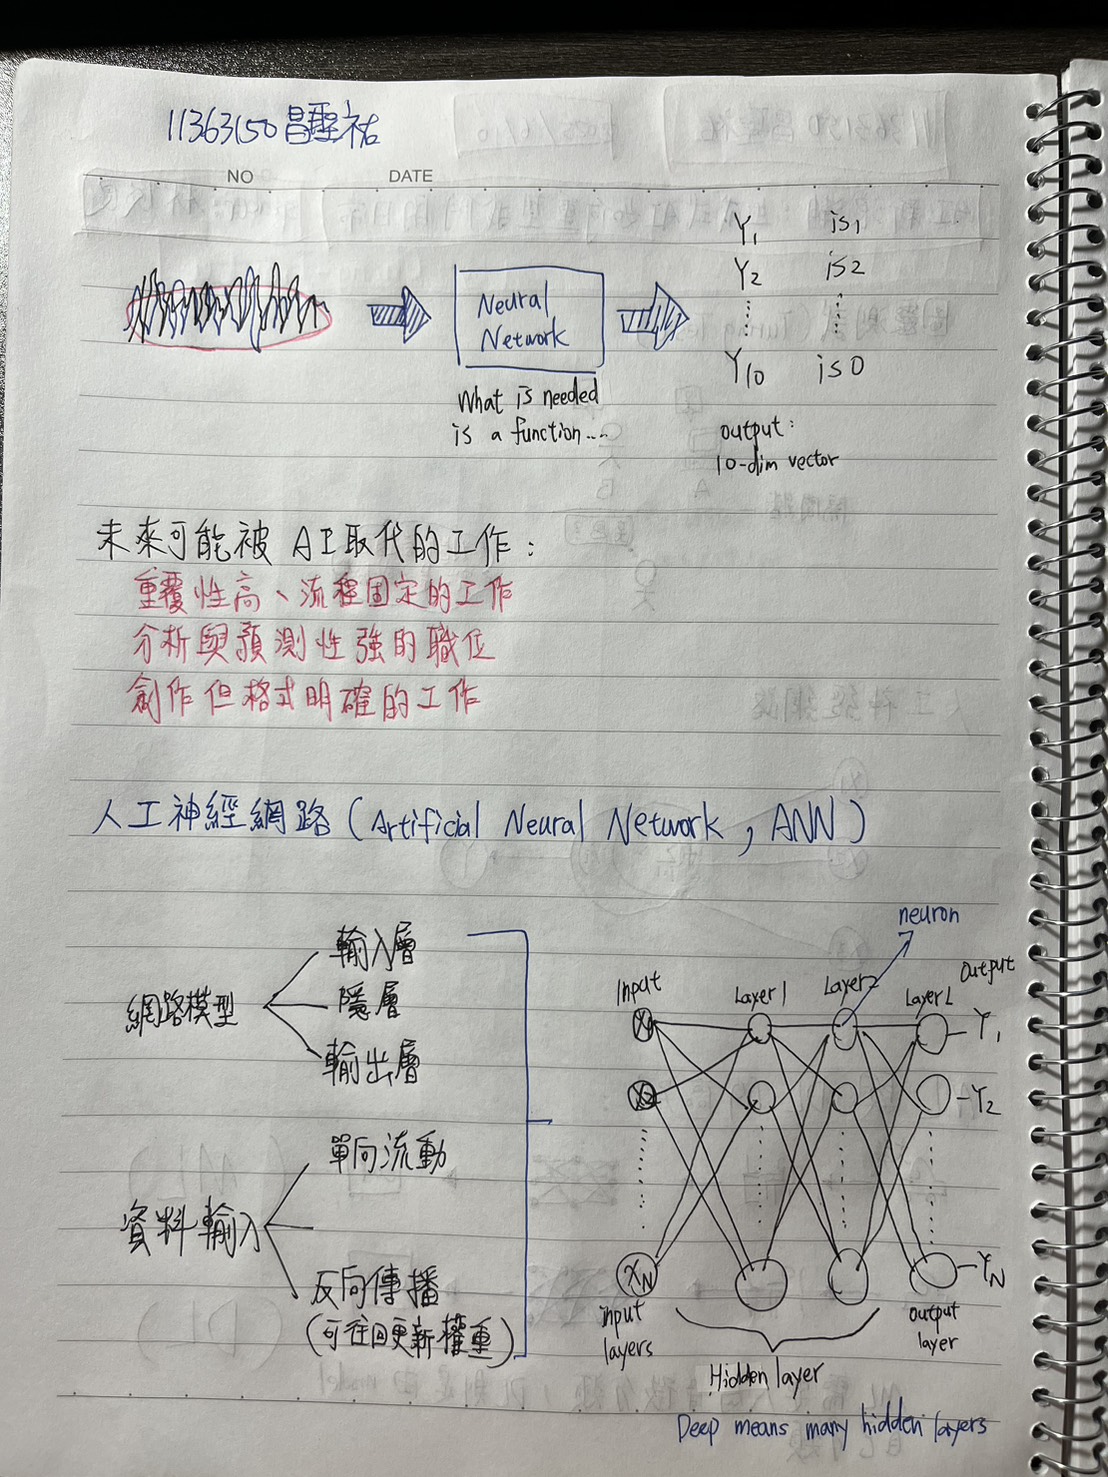 11363150 昌聖祐
NO DATE
Y1 is1
Y2 is2
Y10 is0
Neural
Network
What is needed
is a function...
output:
10-dim vector
未來可能被 AI取代的工作:
重覆性高、流程固定的工作
分析與預測性強的職位
創作但格式明確的工作
人工神經網路(Artificial Neural Network, ANN)
網路模型
輸入層
隱層
輸出層
資料輸入
單向流動
反向傳播
(可往回更新權重)
neuron
Input Layer1 Layer2 Layer L Output
X1 Y1
X2 Y2
XN YN
input
layers
Hidden layer
output
layer
Deep means many hidden layers